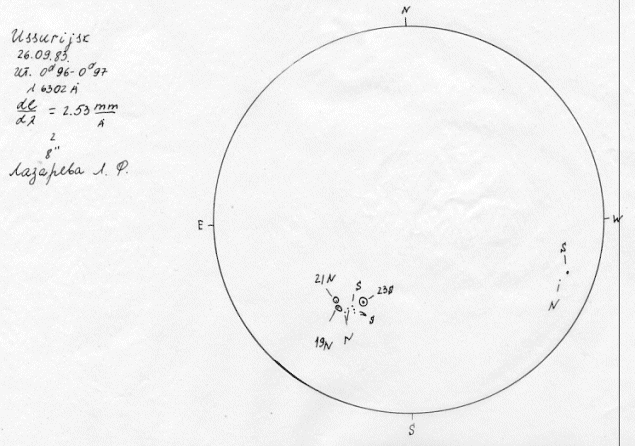 Ussurijsk
26.09.83.
UT. 0ᵈ96-0ᵈ97
λ 6302 Å
dl/dλ = 2.53 mm/Å
2
8"
Лазарева Л. Ф.
N
E
W
S
S
N
21N
S
23S
S
19N
N